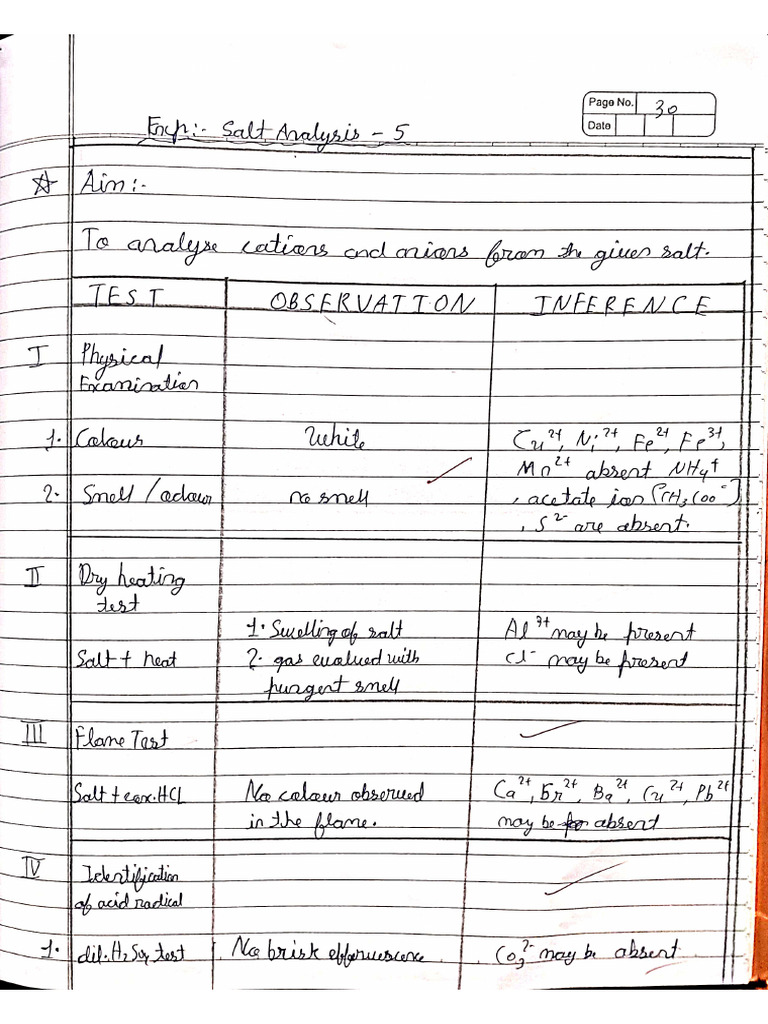 Page No. 30
Date
Exp:- Salt Analysis - 5
Aim:-
To analyse cations and anions from the given salt.
TEST OBSERVATION INFERENCE
I Physical
Examination
1. Colour White Cu²⁺, Ni²⁺, Fe²⁺, Fe³⁺,
Mn²⁺ absent NH4⁺
2. Smell / odour no smell , acetate ion [CH3COO⁻]
, S²⁻ are absent.
II Dry heating
test
1. Swelling of salt Al³⁺ may be present
Salt + heat 2. gas evalued with Cl⁻ may be present
pungent smell
III Flame Test
Salt + conc. HCL No colour observed Ca²⁺, Sr²⁺, Ba²⁺, Cu²⁺, Pb²⁺
in the flame. may be absent
IV Identification
of acid radical
1. dil. H2SO4 test No brisk effervescence. CO3²⁻ may be absent